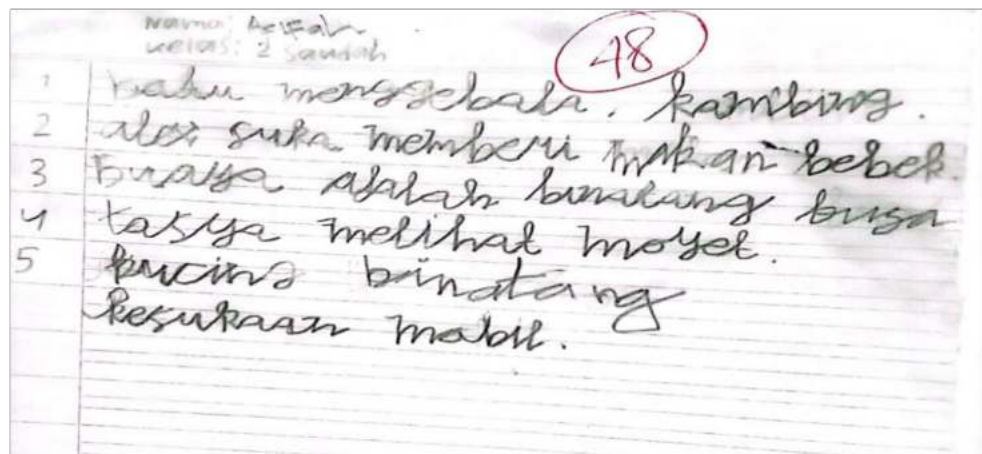 Nama: Arifah
kelas: 2 Saudah
48
1 batu menggebala. kambing.
2 alex suka memberi makan bebek.
3 buaya adalah binatang buga
4 tasya melihat moyet.
5 kucing binatang
kesukaan mabil.